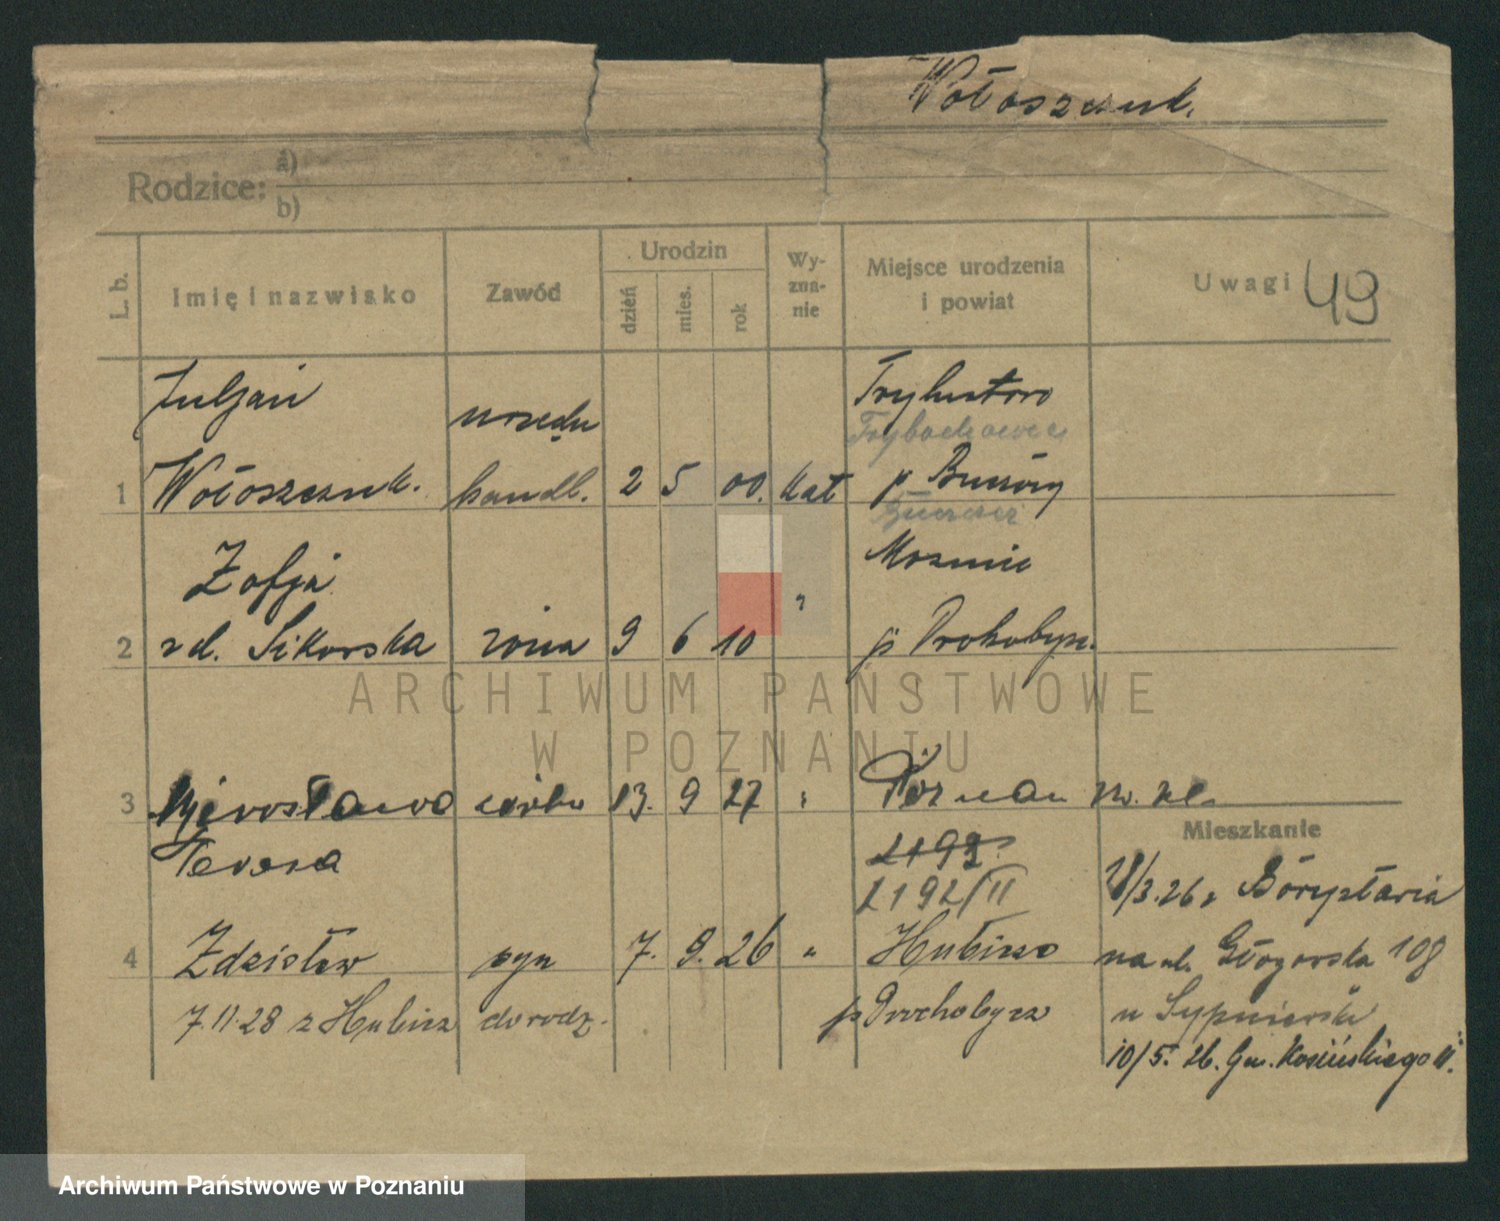 Wołoszczuk.
Rodzice: a)
b)
L. b.
Imię i nazwisko
Zawód
Urodzin
dzień
mies.
rok
Wy-
zna-
nie
Miejsce urodzenia
i powiat
Uwagi 49
Juljan
urzędn
1 Wołoszczuk. handl. 2 5 00. kat p Buczacz
Zofja
2 zd. Sikorska żona 9 6 10 " p Drohobycz.
ARCHIWUM PAŃSTWOWE
W POZNANIU
3 Mirosława córka 13. 9 27 " Poznań
Teresa
Mieszkanie
2193.
2192/II
28/3.26 z Borysławia
4 Zdzisław syn 7. 9. 26 " Hubicze na ul. Głogowska 108
7.11.28 z Hubicz do rodz. p Drohobycz u Sypniewski
10/5. 26. Kosińskiego 11.
Archiwum Państwowe w Poznaniu